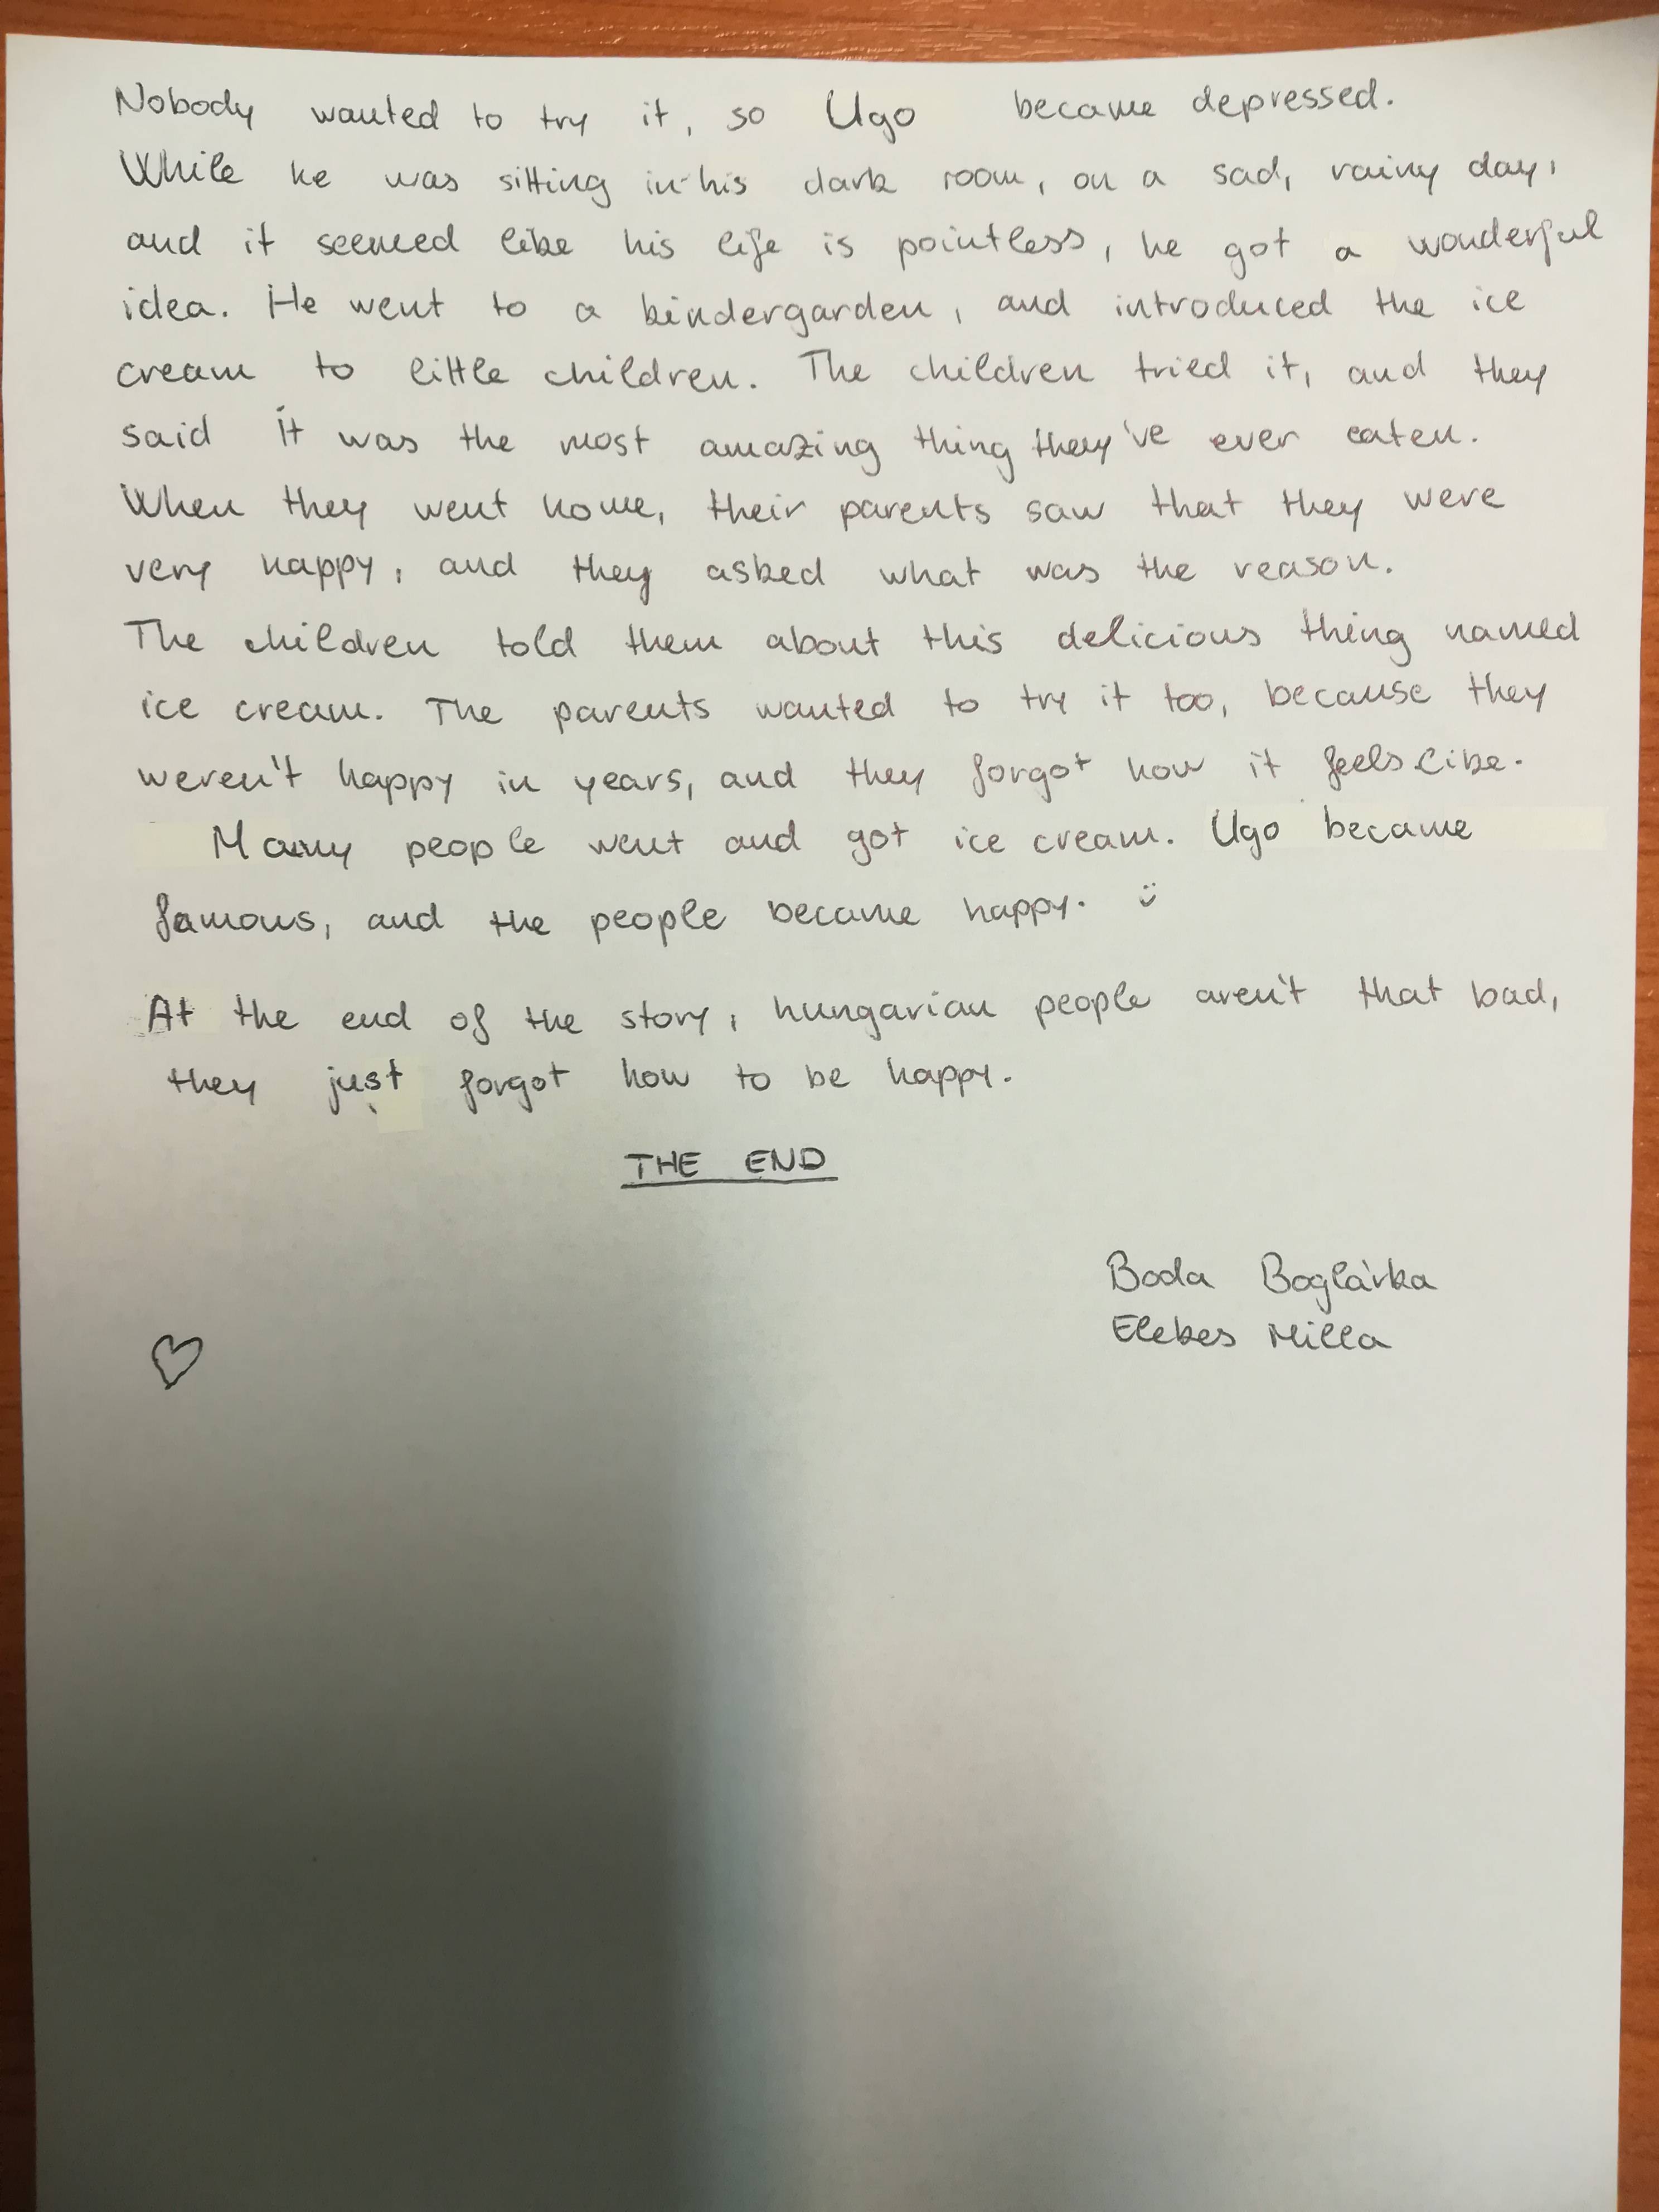 Nobody wanted to try it, so Ugo became depressed.
While he was sitting in his dark room, on a sad, rainy day,
and it seemed like his life is pointless, he got a wonderful
idea. He went to a kindergarden, and introduced the ice
cream to little children. The children tried it, and they
said it was the most amazing thing they've ever eaten.
When they went home, their parents saw that they were
very happy, and they asked what was the reason.
The children told them about this delicious thing named
ice cream. The parents wanted to try it too, because they
weren't happy in years, and they forgot how it feels like.
Many people went and got ice cream. Ugo became
famous, and the people became happy. :)
At the end of the story, hungarian people aren't that bad,
they just forgot how to be happy.
THE END
Boda Boglárka
Elekes Milla